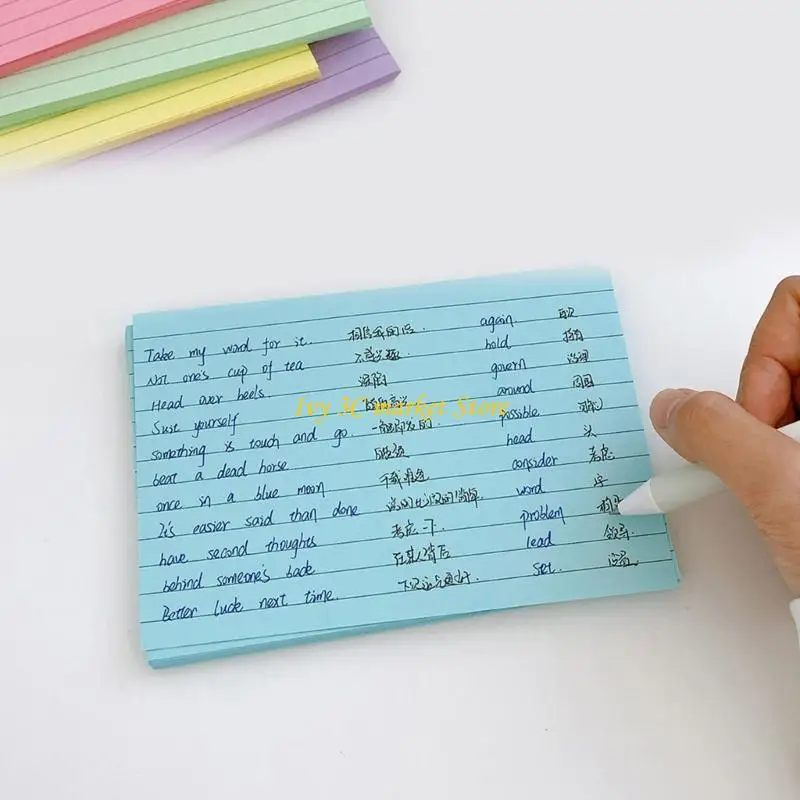 Take my word for it. 相信我的话. again 再次
Not one's cup of tea 不感兴趣 hold
Head over heels. govern 治理
Suit yourself Ivy 3C market Store around 周围
something is touch and go. 一触即发的. possible 可能
beat a dead horse head 头
once in a blue moon 千载难逢 consider 考虑
It's easier said than done 说的比做的简单 word 字
have second thoughts 考虑一下. problem
behind someone's back 在某人背后 lead 领导.
Better luck next time. 下次运气更好. set. 设置